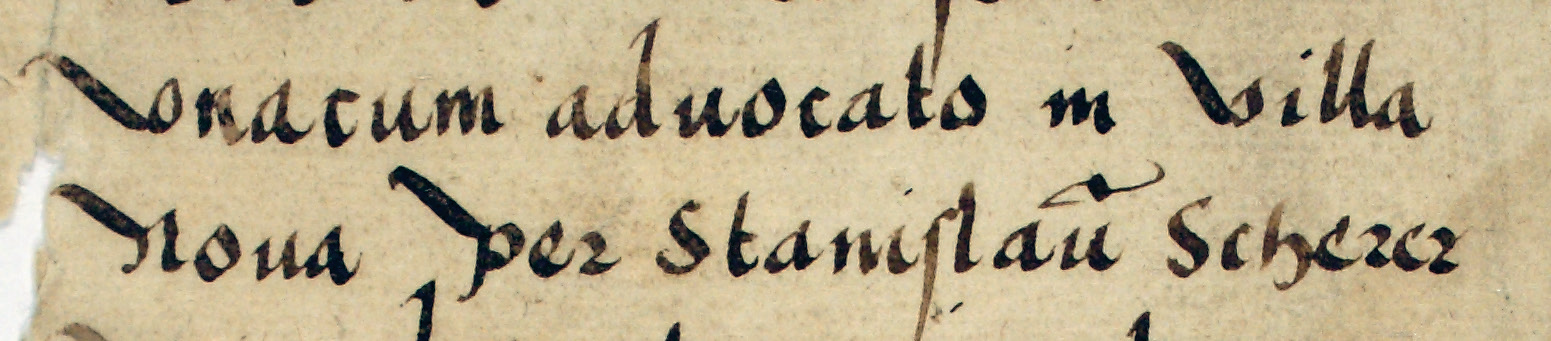 vonatum aduocato in Villa
Noua per Stanislaū Scherer